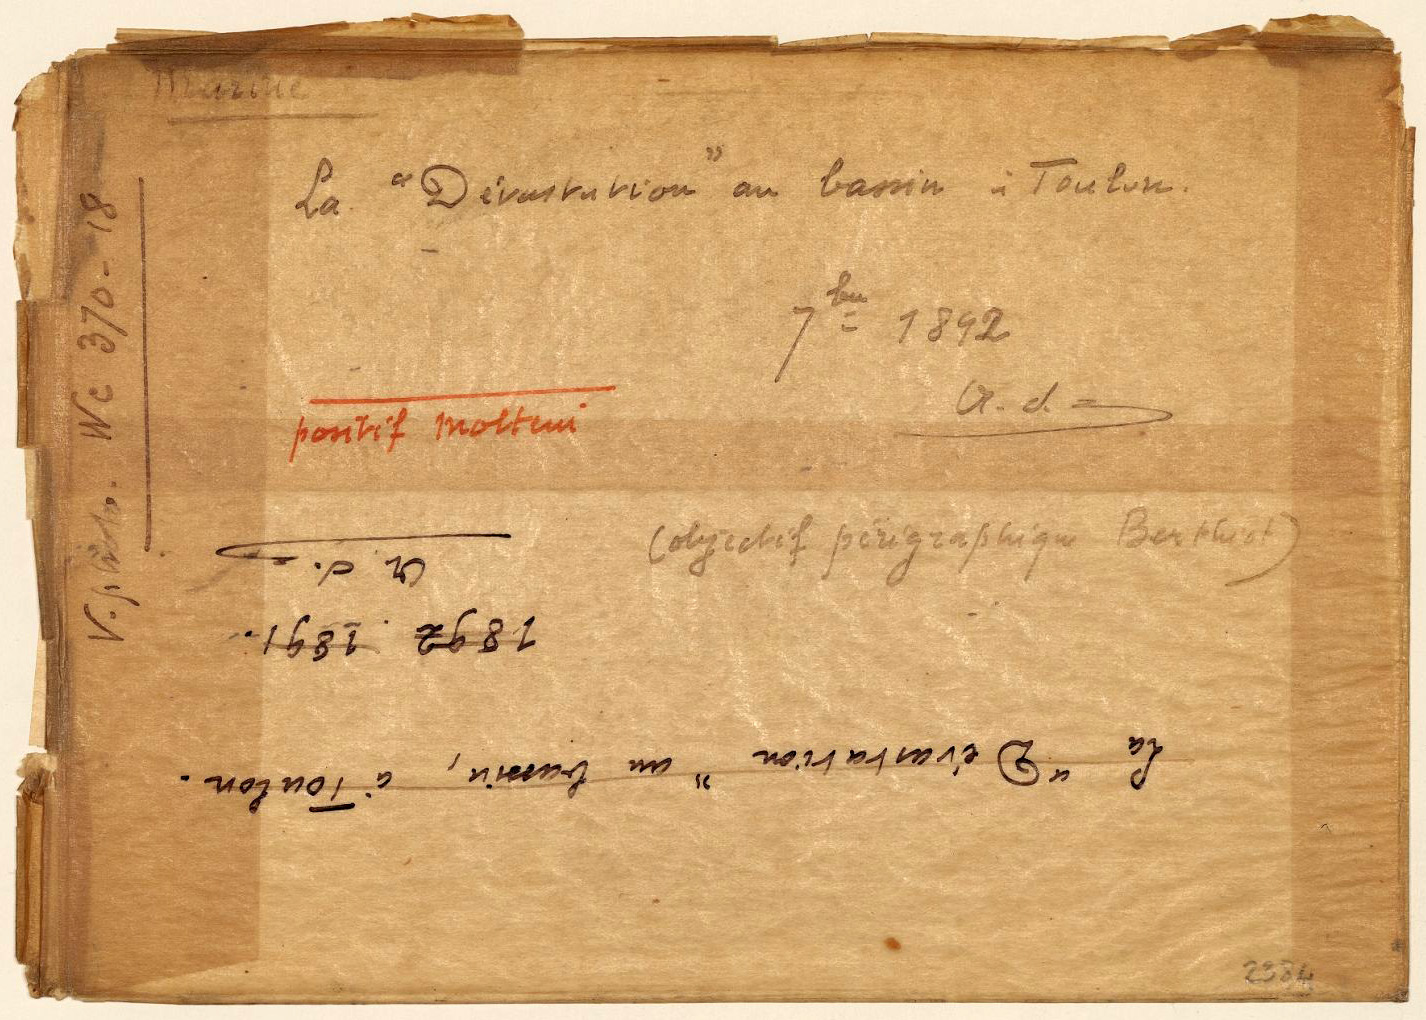 Marine
La "Dévastation" au bassin à Toulon.
7bre 1892
A. d.
positif Molteni
(objectif périgraphique Berthiot)
V. phot. We 370-18
La "Dévastation" au bassin, à Toulon.
1892 1891.
A. d.
2384